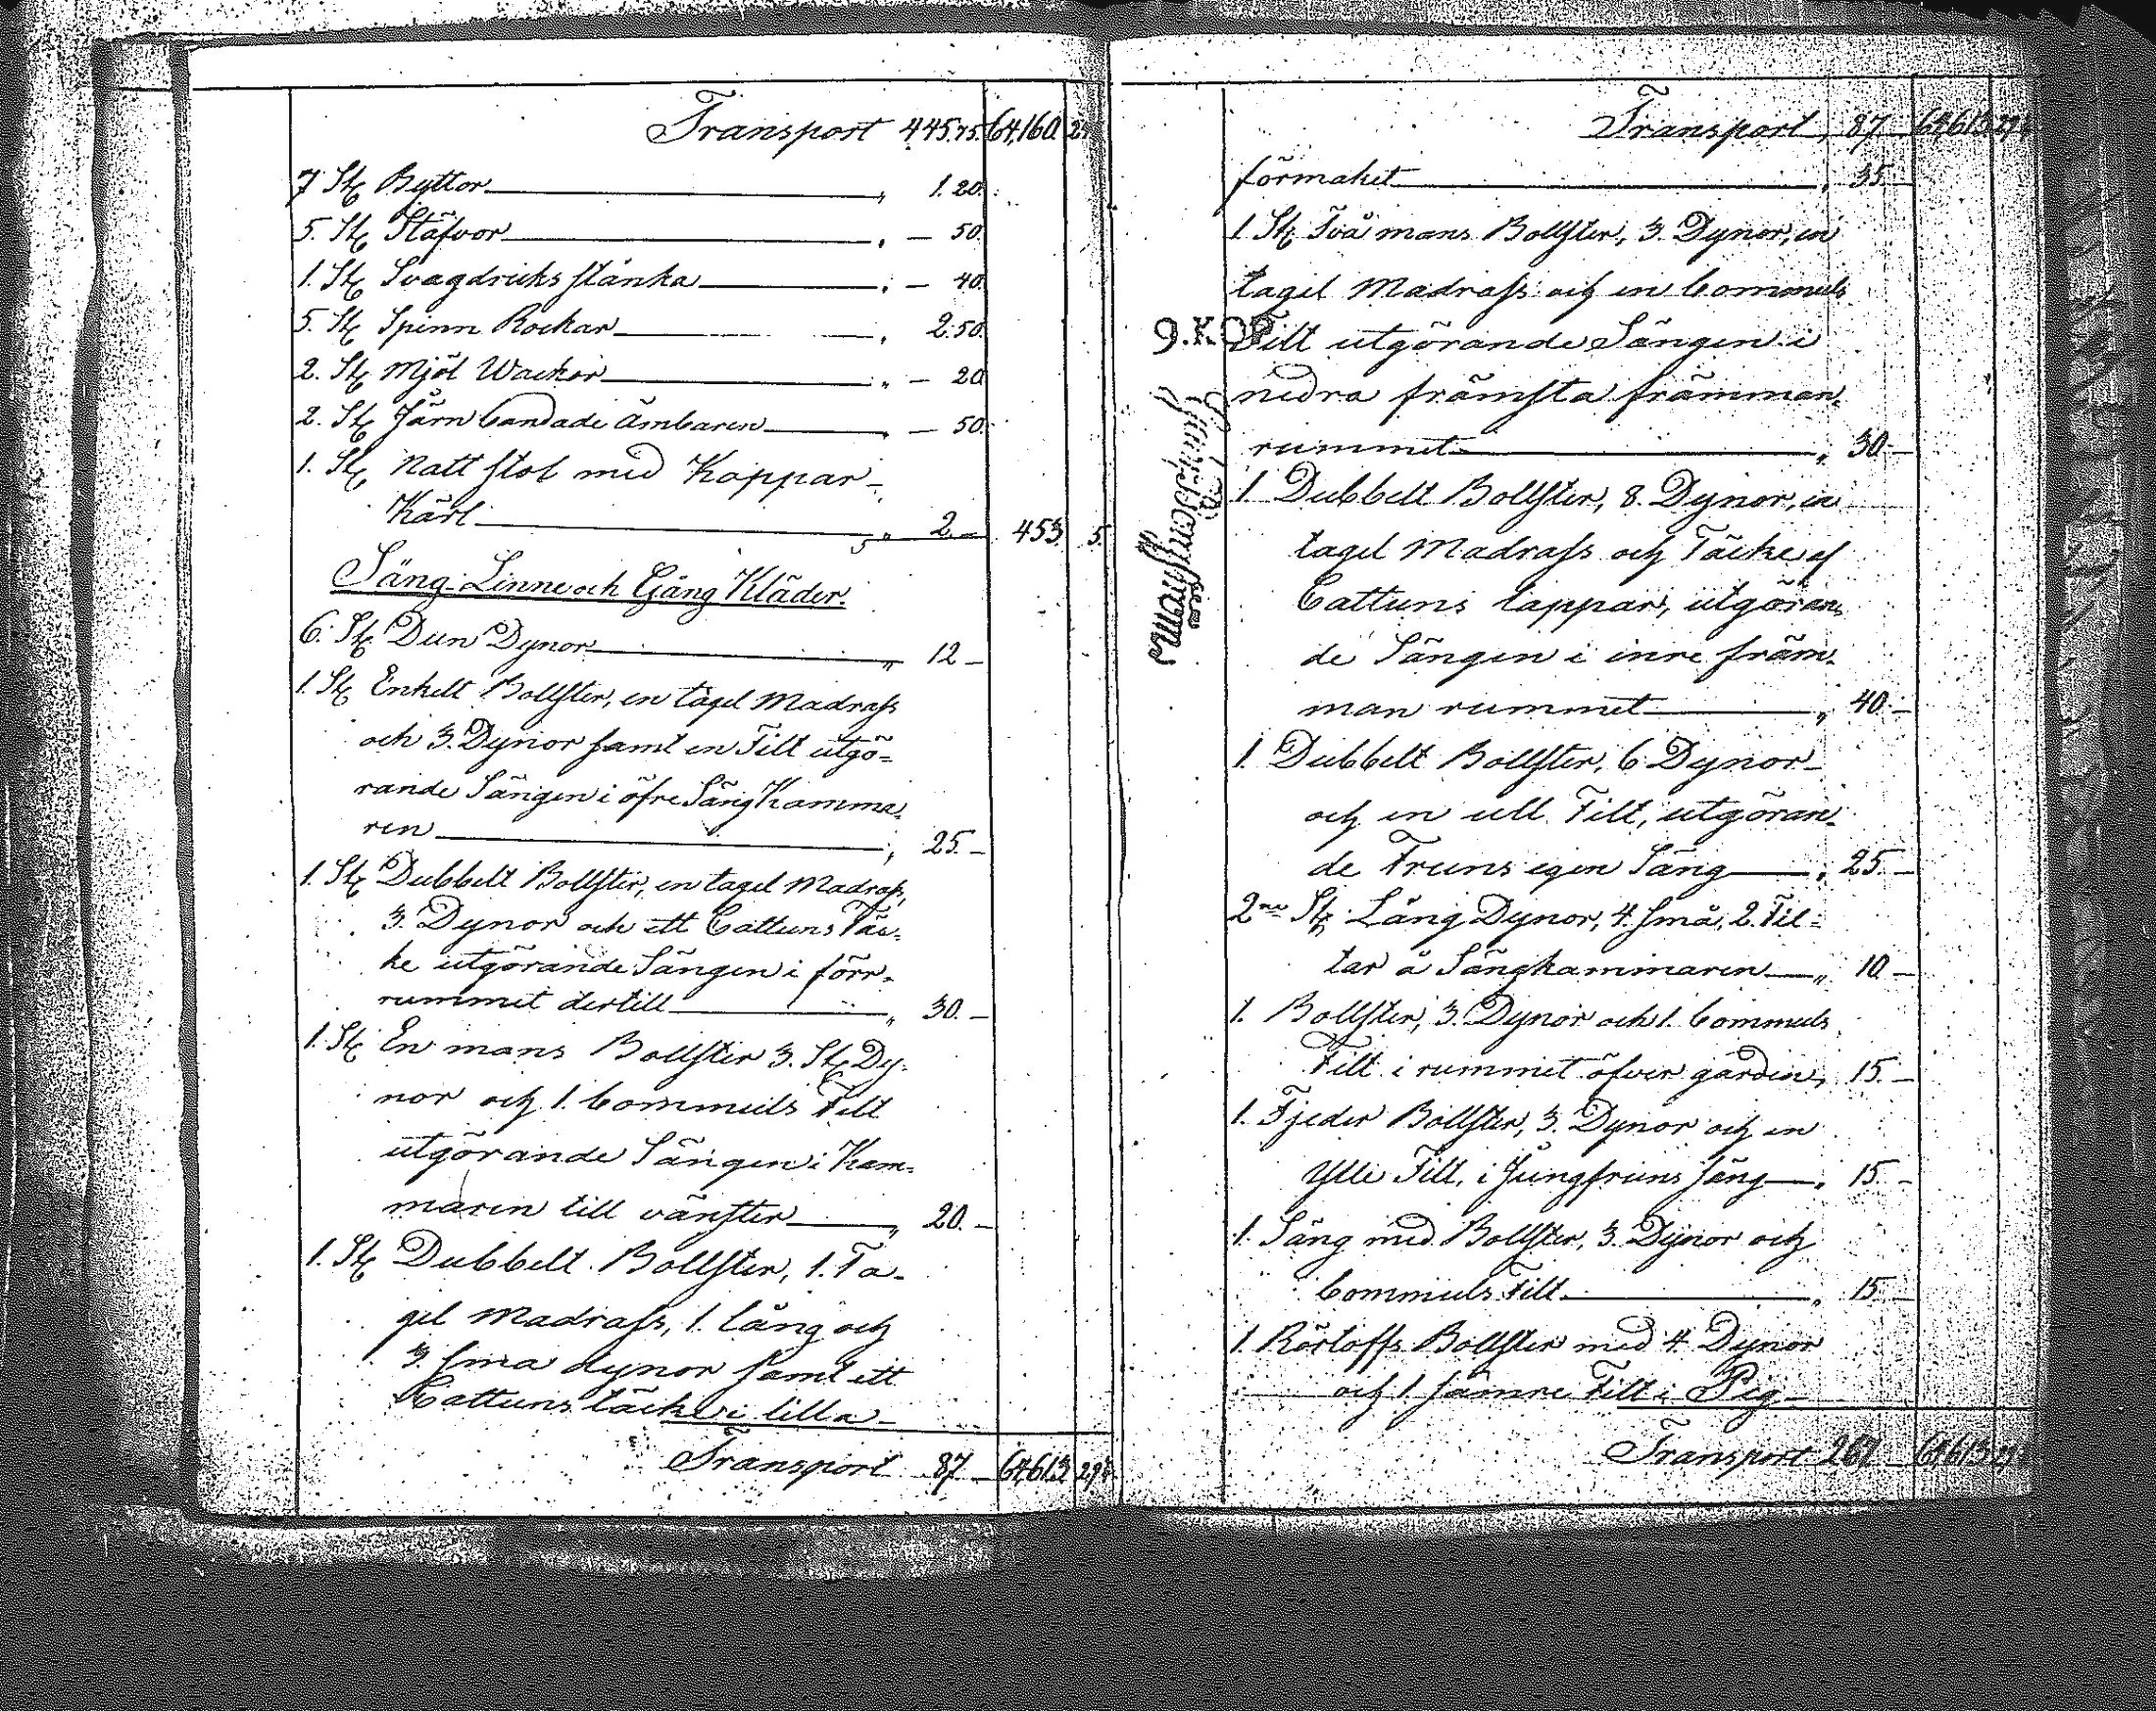 Transport 445.75. 64,160 29
7 St Byttor „ 1.20.
5. St Stäfvor „ — 50.
1. St Svagdricks stånka „ — 40.
5. St Spinn Rockar „ 2.50.
2. St Mjöl Wackor „ — 20
2. St Järn bandade Ämbaren „ — 50.
1. St Natt stol med Koppar-
Kärl „ 2.— 453 5.
Säng-Linne och Gång Kläder.
6. St Dun Dynor „ 12 —
1. St Enkelt Bollster, en tagel Madrass
och 3. Dynor samt en Filt utgö-
rande Sängen i öfre Säng Kamma-
ren „ 25. —
1. St Dubbelt Bollster, en tagel Madrass,
3. Dynor och ett Cattuns Täc-
ke utgörande Sängen i förr-
rummet dertill „ 30. —
1. St En mans Bollster 3. St Dy-
nor och 1. Bommuls Filt
utgörande Sängen i Kam-
maren till vänster „ 20. —
1. St Dubbelt Bollster, 1. Ta-
gel Madrass, 1. lång och
3. Små dynor samt ett
Cattuns täcke i lilla
Transport 87 — 64613 29
Transport 87 — 64613 29
förmaket „ 35. —
1. St Två mans Bollster, 3. Dynor, en
tagel Madrass och en Bommuls
9. KOP
Filt utgörande Sängen i
nedra främsta främman-
rummet „ 30. —
1 Dubbelt Bollster, 8. Dynor, en
tagel Madrass och Täcke af
Cattuns lappar, utgöran-
de Sängen i inre främ-
man rummet „ 40. —
1. Dubbelt Bollster, 6 Dynor
och en ull Filt, utgöran-
de Fruns egen Säng „ 25. —
2ne St Lång Dynor, 4. Små, 2. Fil-
tar å Sängkammaren „ 10 —
1. Bollster, 3. Dynor och 1. Bommuls
Filt i rummet öfver gården „ 15. —
1. Fjeder Bollster, 3. Dynor och en
Ylle Filt, i Jungfruns Säng „ 15. —
1. Säng med Bollster, 3. Dynor och
Bommuls Filt „ 15. —
1 Bollster med 4 Dynor
och 1 sämre Filt i Pig-
Transport 267 64613 29